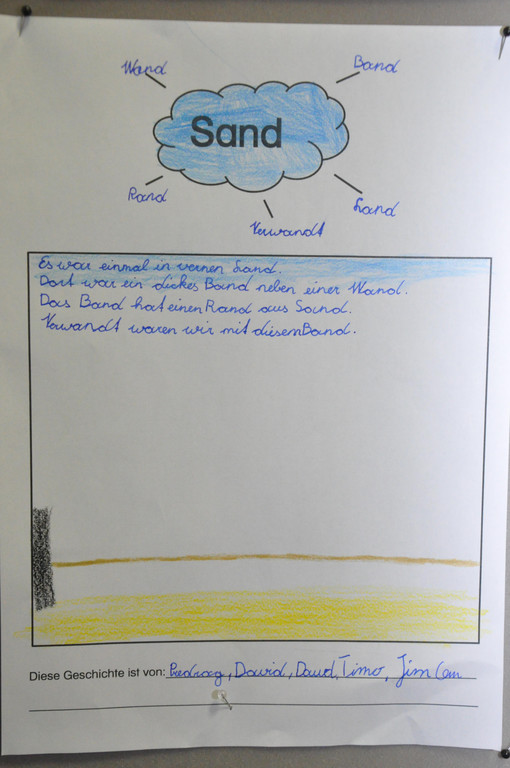 Wand
Band
Sand
Rand
Land
Verwandt
Es war einmal in vernen Land.
Dort war ein dickes Band neben einer Wand.
Das Band hat einen Rand aus Sand.
Verwandt waren wir mit diesem Band.
Diese Geschichte ist von: Predrag, David, David, Timo, Jim Cem